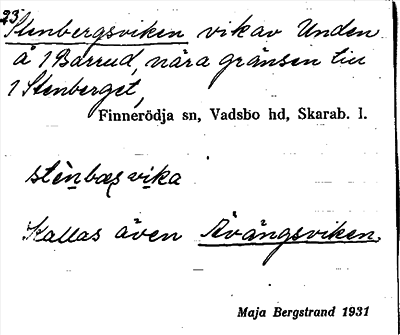 23.
Stenbergsviken vik av Unden
å 1 Barrud, nära gränsen till
1 Stenberget,
Finnerödja sn, Vadsbo hd, Skarab. l.
stènbæsvika
Kallas även Åvängsviken.
Maja Bergstrand 1931